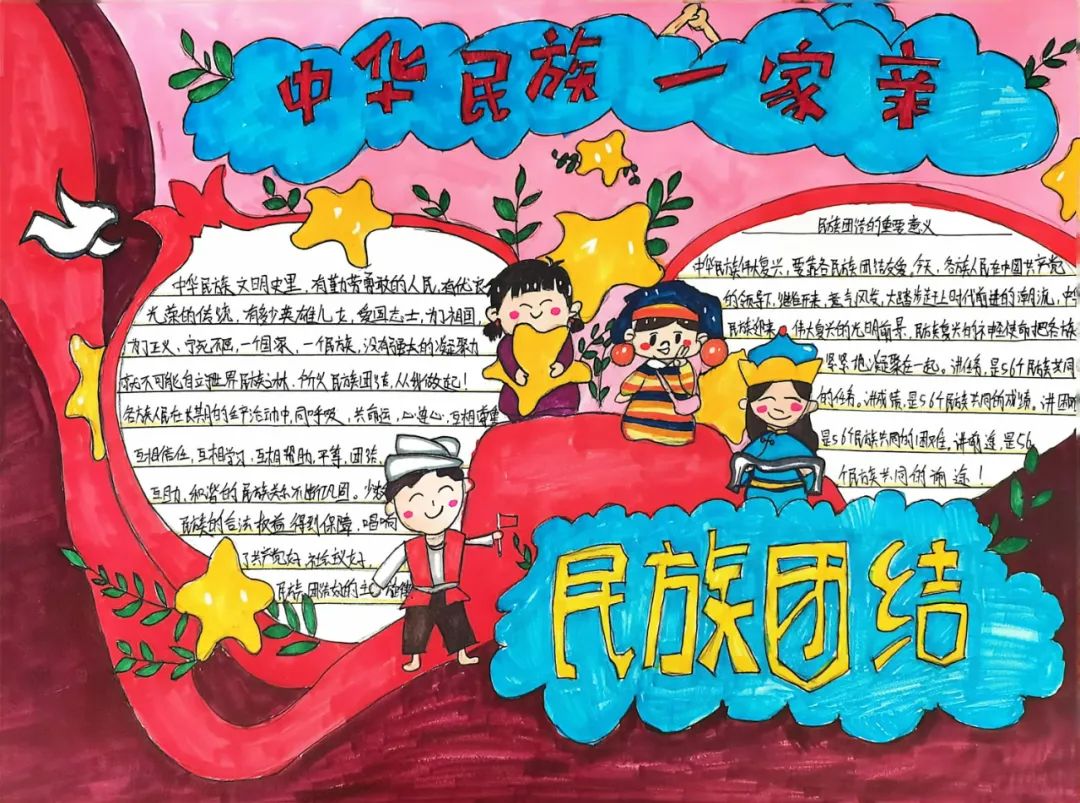 中华民族一家亲
民族团结的重要意义
中华民族文明史里，有勤劳勇敢的人民，有优
光荣的传统，有多少英雄儿女，爱国志士，为了祖国，
为了正义，宁死不屈，一个国家，一个民族，没有强大的凝聚力
就不可能自立世界民族之林，所以民族团结，从我做起！
各族人民在长期的生产活动中，同呼吸，共命运，心连心，互相尊重
互相信任，互相学习，互相帮助，平等，团结，
互助，和谐的民族关系不断巩固。少数
民族的合法权益得到保障，唱响
了共产党好，社会主义好，
民族团结好的主旋律
中华民族伟大复兴，要靠各民族团结友爱，今天，各族人民在中国共产党
的领导下，继往开来，意气风发，大踏步走上时代前进的潮流，中华
民族迎来伟大复兴的光明前景，民族复兴的历史使命把各族
紧紧地凝聚在一起。讲任务，是56个民族共同
的任务。讲成绩，是56个民族共同的成绩。讲困难
是56个民族共同的困难，讲前途，是56
个民族共同的前途！
民族团结